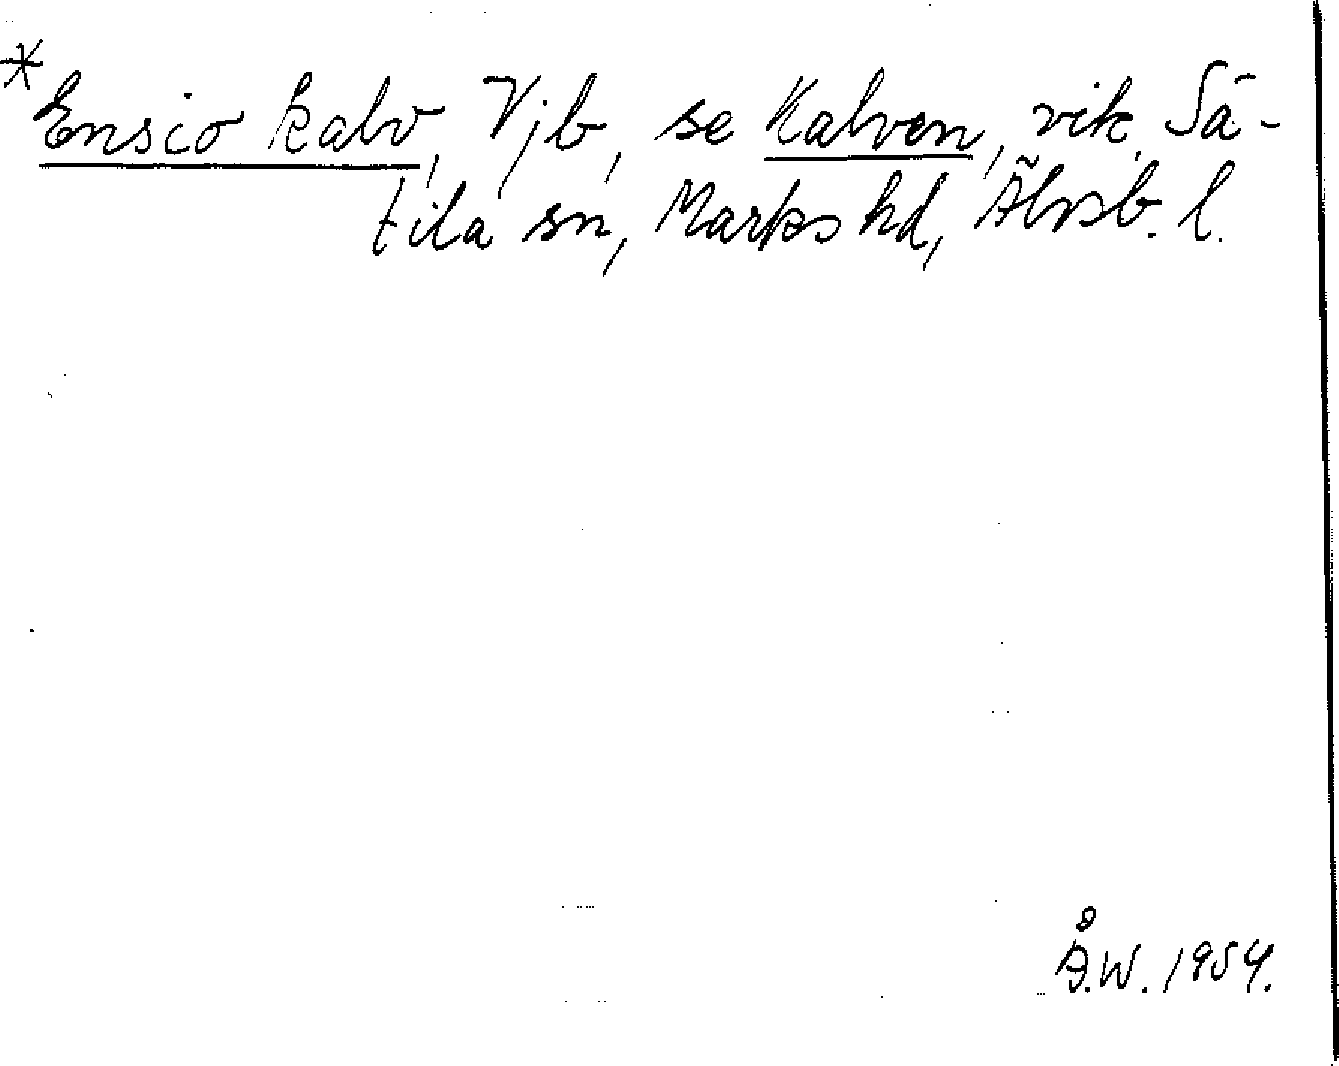 * Ensio kalv, Vjb, se Kalven, vik, Sä-
tila sn, Marks hd, Älvsb. l.
Å.W. 1954.